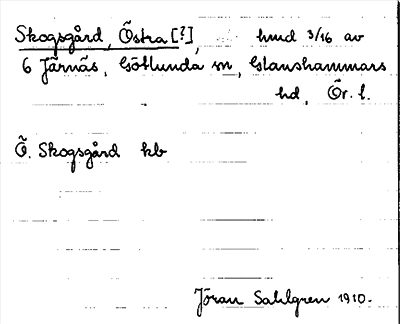 Skogsgård, Östra [?], hmd 3/16 av
6 Järnäs, Götlunda sn, Glanshammars
hd, Ör. l.
Ö. Skogsgård kb
Jöran Sahlgren 1910.